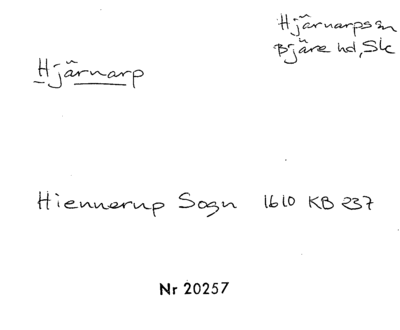 Hjärnarpssn
Bjäre hd, Sk
Hjärnarp
Hiennerup Sogn 1610 KB 237
Nr 20257